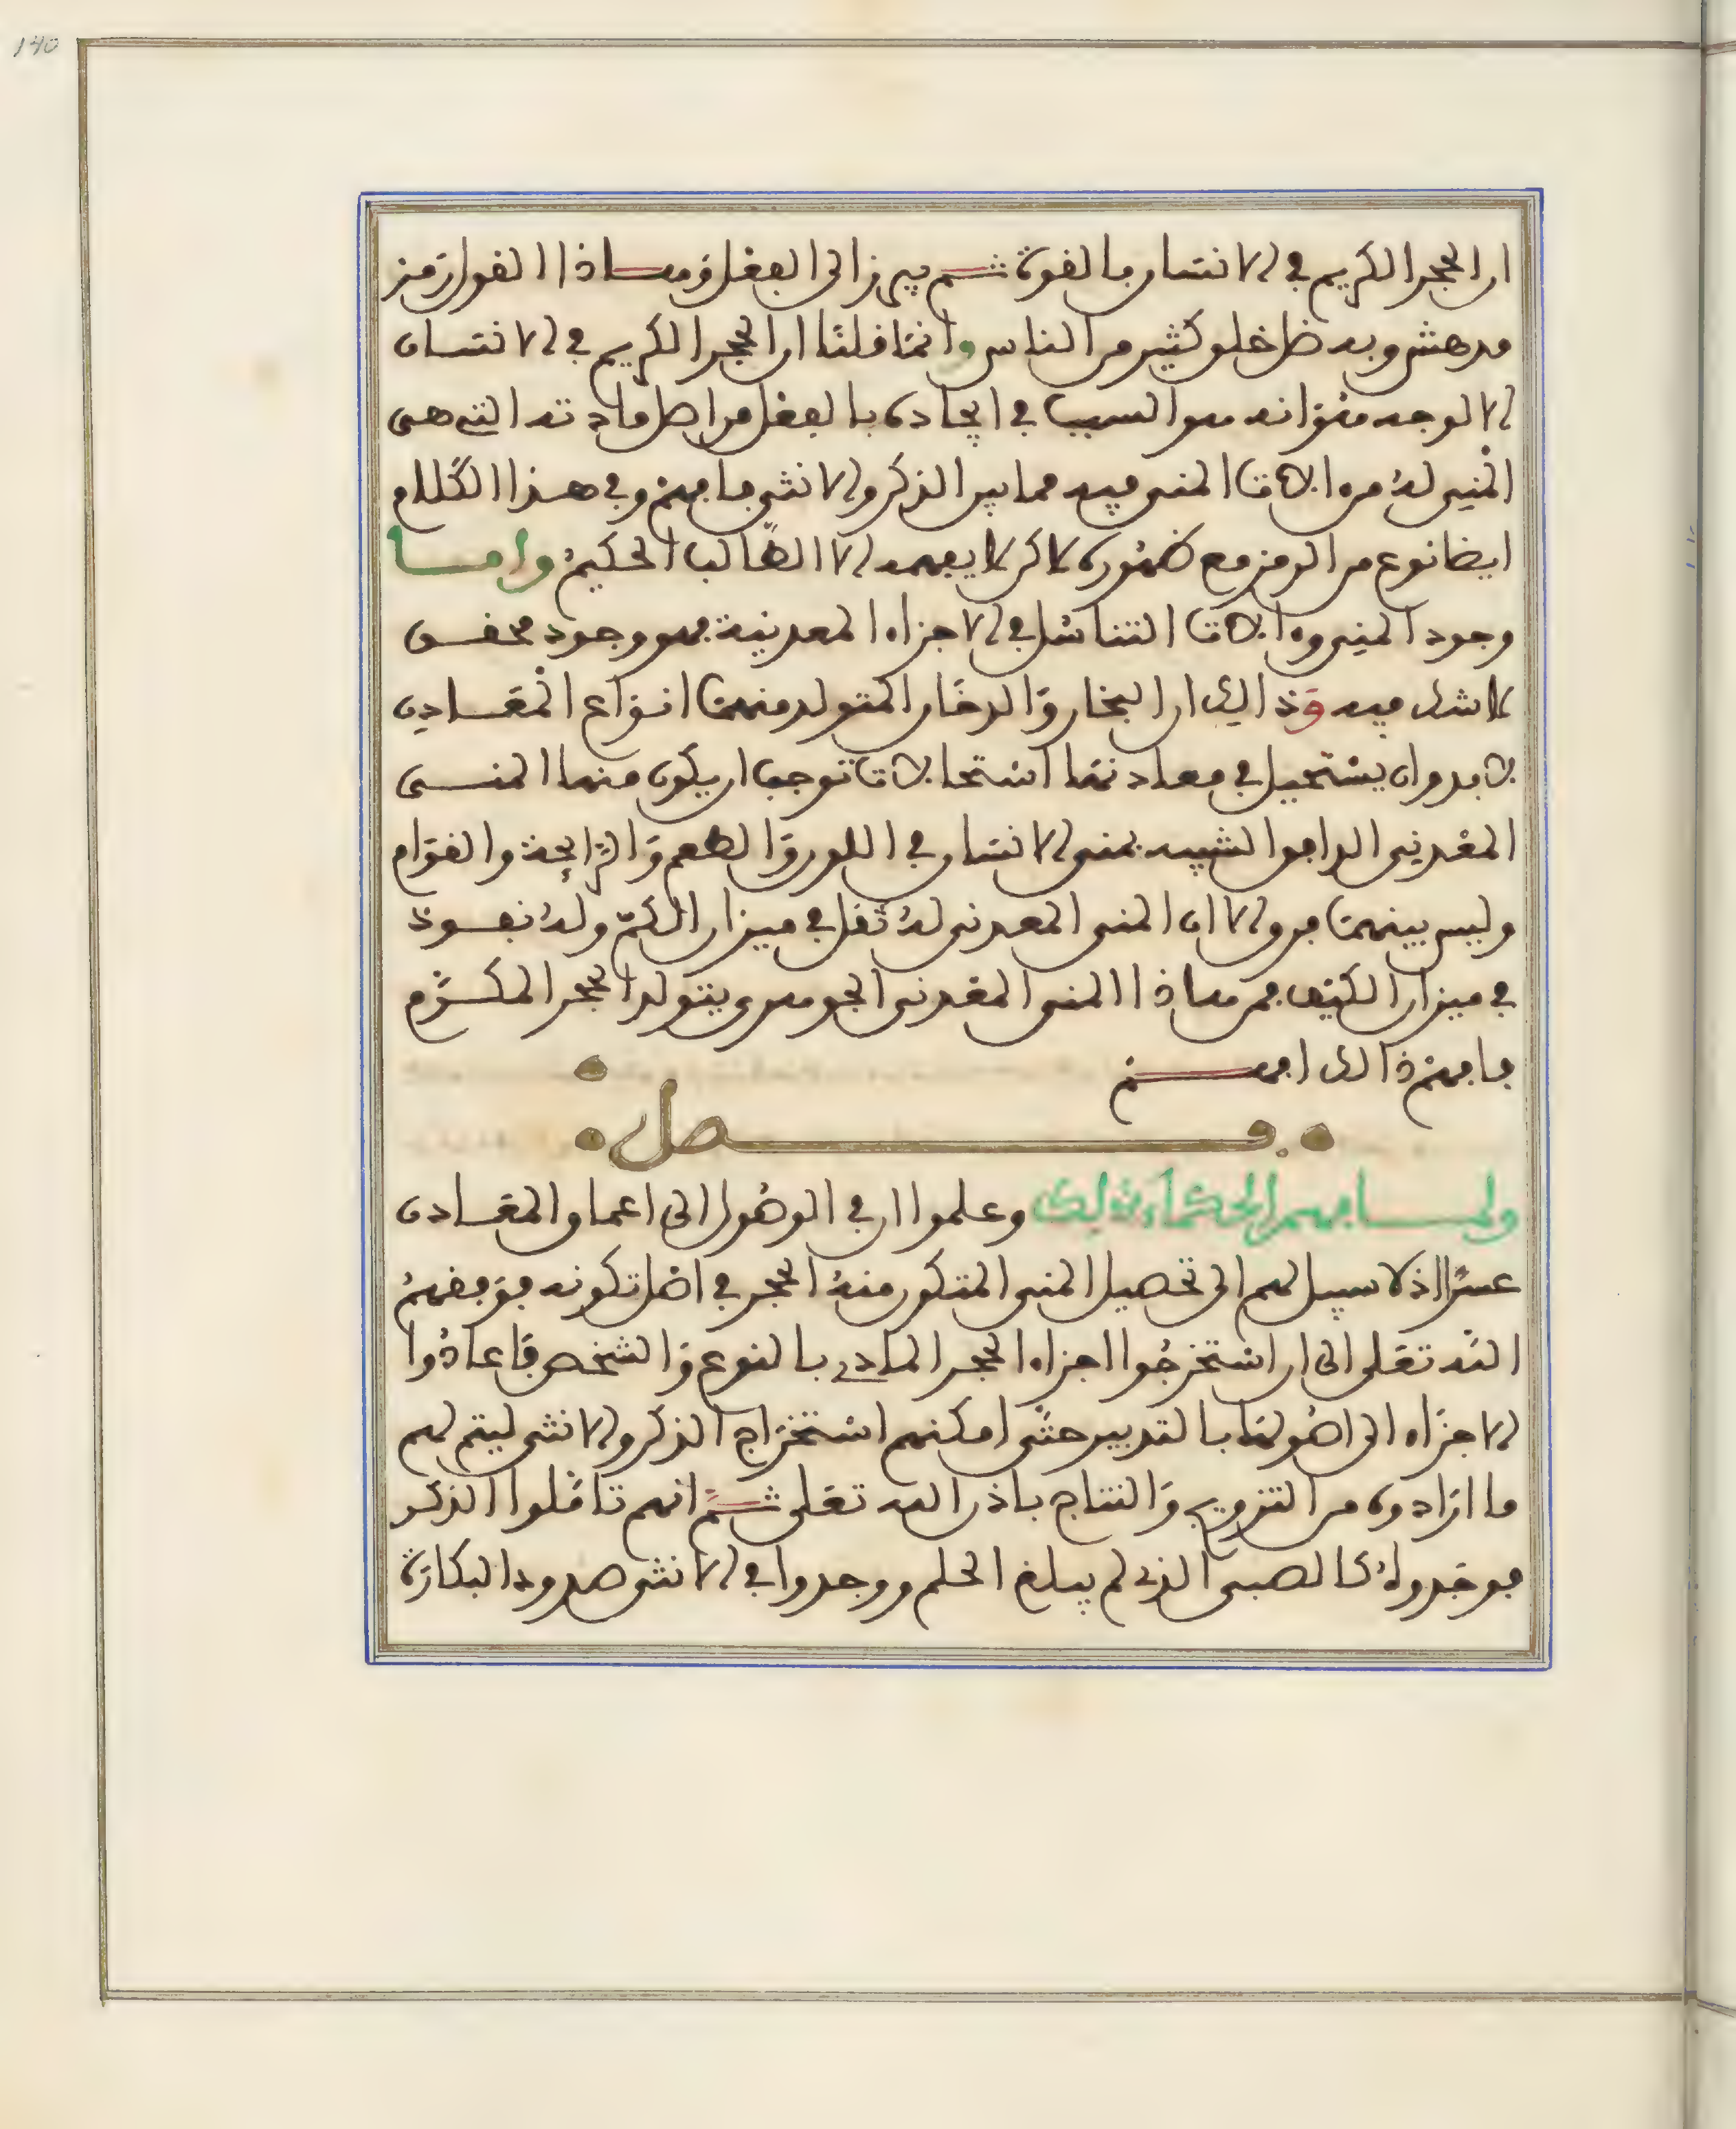 140
ان الحجر الكريم في الانسان بالقوة ثم يبرز الى الفعل وهاذا القول رمز
مدهش وبه ضل خلق كثير من الناس وانما قلنا ان الحجر الكريم في الانسان
الا لوجه هو انه هو السبب في ايجاده بالفعل من اصل مادته التي هي
المني له من ءالات المني فيه مما بين الذكر والانثى فافهم وفي هذا الكلام
ايضا نوع من الرمز مع ظهوره لاكن لا يفهمه الا الطالب الحكيم واما
وجود المني وءالات التناسل في الاجزاء المعدنية فهو وجود محقق
لا شك فيه وذالك ان البخار والدخان المتولد منهما انواع المعادن
لابد وان يستحيل في معادنها استحالات توجب ان يكون منها المنى
المعدني الدافق الشبيه بمنى الانسان في اللون والطعم والرايحة والقوام
وليس بينهما فرق الا ان المنى المعدني له ثقل في ميزان الكم وله نفوذ
في ميزان الكيف فمن هاذا المنى المعدني الجوهري يتولد الحجر المكرم
فافهم ذالك افهم
فصل
ولما فهم الحكماء ذلك وعلموا ان في الوصول الى اعماق المعادن
عسرا اذ لا سبيل لهم الى تحصيل المنى المتكون منه الحجر في اصل تكونه فوفقهم
الله تعلى الى ان استخرجوا اجزاء الحجر المادي بالنوع والشخص فاعادوا
الاجزاء الى اصولها بالتدبير حتى امكنهم استخراج الذكر والانثى ليتم لهم
ما ارادوه من التزويج والنتاج باذن الله تعلى ثم انهم تاملوا الذكر
فوجدوه كالصبى الذي لم يبلغ الحلم ووجدوا في الانثى صدود البكارة